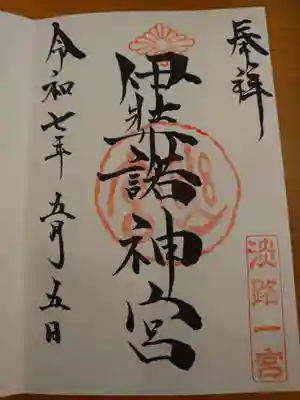 奉拝
淡路一宮
伊弉諾神宮
令和七年 五月 五日